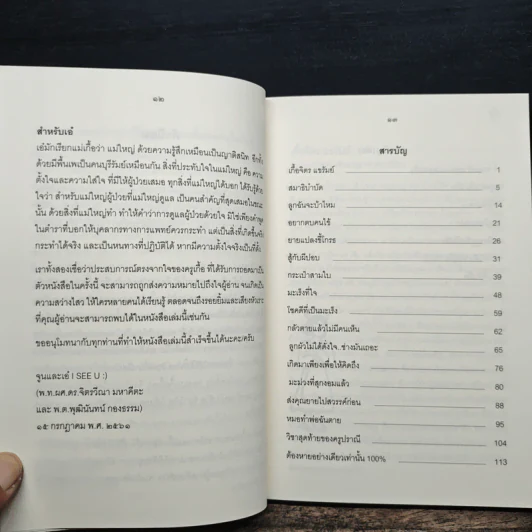 ๑๒
สำหรับเอ๋
เอ๋มักเรียกแม่เกื้อว่า แม่ใหญ่ ด้วยความรู้สึกเหมือนเป็นญาติสนิท อีกทั้ง
ด้วยมีพื้นเพเป็นคนบุรีรัมย์เหมือนกัน สิ่งที่ประทับใจในแม่ใหญ่ คือ ความ
ตั้งใจและความใส่ใจ ที่มีให้ผู้ป่วยเสมอ ทุกสิ่งที่แม่ใหญ่ได้บอก ได้รับรู้ด้วย
ใจว่า สำหรับแม่ใหญ่ผู้ป่วยที่แม่ใหญ่ดูแล เป็นคนสำคัญที่สุดเสมอในขณะ
นั้น ด้วยสิ่งที่แม่ใหญ่ทำ ทำให้คำว่าการดูแลผู้ป่วยด้วยใจ มิใช่เพียงคำพูด
ในตำราที่บอกให้บุคลากรทางการแพทย์ควรกระทำ แต่เป็นสิ่งที่เกิดขึ้น
กระทำได้จริง และเป็นหนทางที่ปฏิบัติได้ หากมีความตั้งใจจริงเป็นที่ตั้ง
เราทั้งสองเชื่อว่าประสบการณ์ตรงจากใจของครูเกื้อ ที่ได้รับการถอดมาเป็น
ตัวหนังสือในครั้งนี้ จะสามารถถูกส่งความหมายไปถึงใจผู้อ่าน จนเกิดเป็น
ความสว่างไสว ให้ใครหลายคนได้เรียนรู้ ตลอดจนถึงรอยยิ้มและเสียงหัวเราะ
ที่คุณผู้อ่านจะสามารถพบได้ในหนังสือเล่มนี้เช่นกัน
ขออนุโมทนากับทุกท่านที่ทำให้หนังสือเล่มนี้สำเร็จขึ้นได้นะคะ/ครับ
จูนและเอ๋ I SEE U :)
(พ.ท.ผศ.ดร.จิตรวีณา มหาคีตะ
และ พ.ต.พุฒินันท์ กองธรรม)
๑๕ กรกฎาคม พ.ศ. ๒๕๖๑
๑๓
สารบัญ
เกื้อจิตร แขรัมย์ 1
สมาธิบำบัด 5
ลูกฉันจะบ้าไหม 14
อยากตบคนไข้ 21
ยายแปลงขี้โกรธ 26
สู้กับผีปอบ 31
กระเป๋าสามใบ 39
มะเร็งที่ใจ 48
โชคดีที่เป็นมะเร็ง 59
กลัวตายแล้วไม่มีคนเห็น 62
ลูกผัวไม่ได้ดั่งใจ..ช่างมันเถอะ 65
เกิดมาเพียงเพื่อให้คิดถึง 76
มะม่วงที่สุกงอมแล้ว 80
ส่งคุณยายไปสวรรค์ก่อน 88
หมอทำพ่อฉันตาย 95
วิชาสุดท้ายของครูปราณี 104
ต้องหายอย่างเดียวเท่านั้น 100% 113